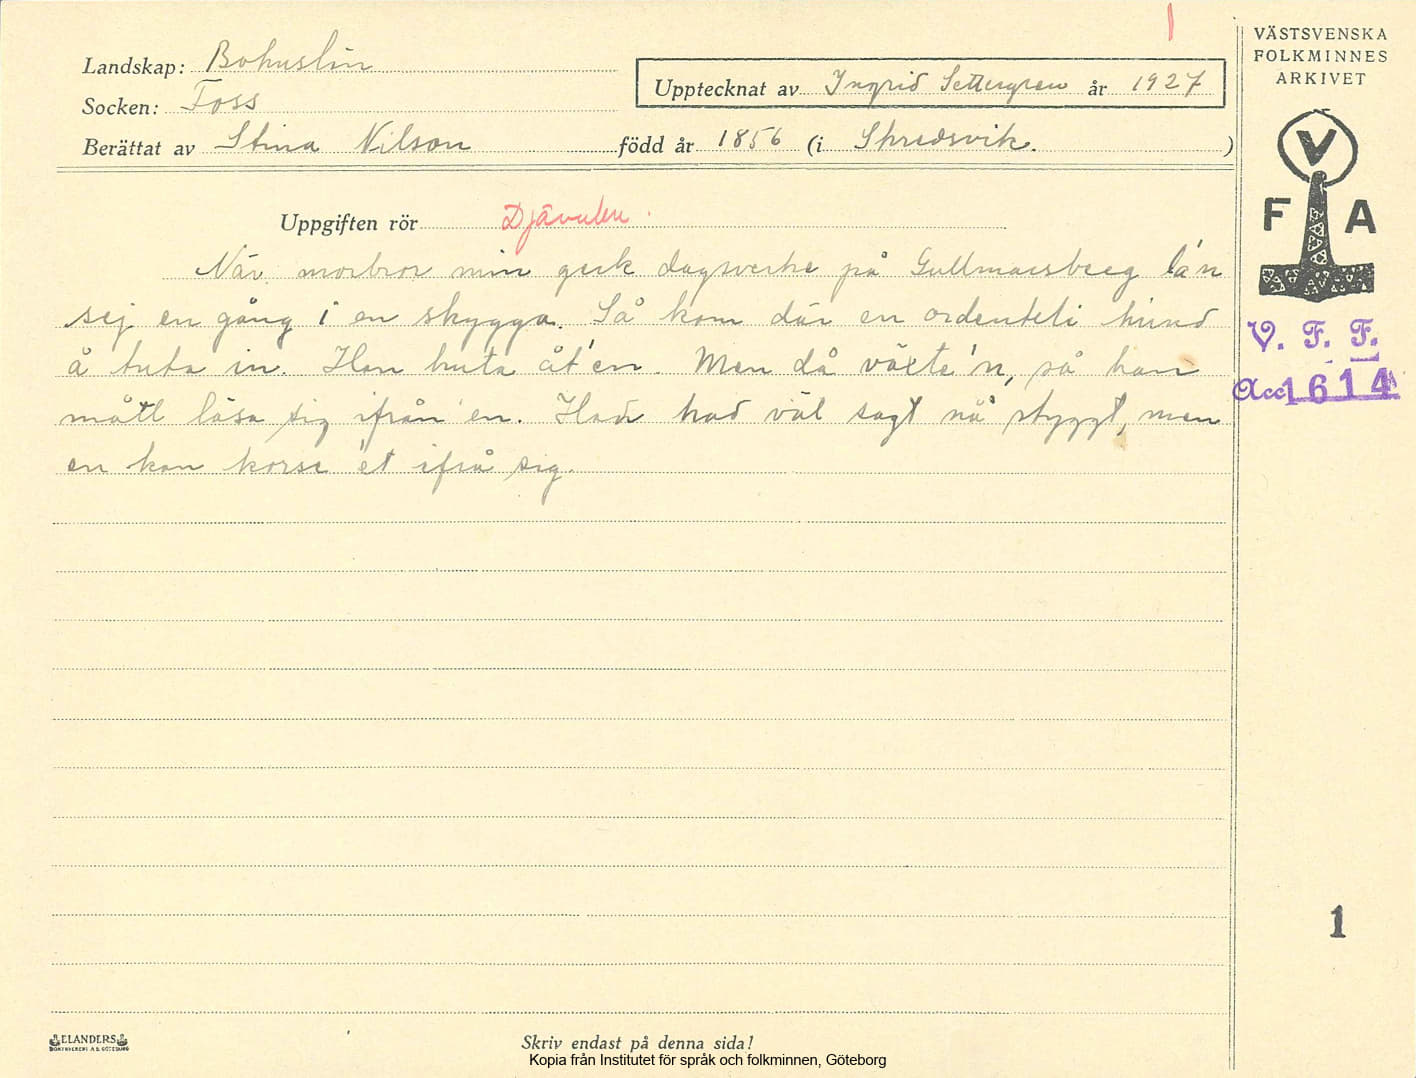 Landskap: Bohuslän
Socken: Foss
Berättat av Stina Nilson född år 1856 (i Skredsvik. )
Upptecknat av Ingrid Settergren år 1927
VÄSTSVENSKA
FOLKMINNES
ARKIVET
V
F A
V. F. F.
Acc 1614
Uppgiften rör Djävulen.
När morbror min geck dagsverke på Gullmarsberg la'n
sej en gång i en skygga. Så kom där en ordenteli hund
å tuta in. Han huta åt'en. Men då växte'n, så han
mått läsa sig ifrån'en. Han had väl sagt nå' styggt, men
en kan korse et ifrå sig.
1
ELANDERS
BOKTRYCKERI A.B. GÖTEBORG
Skriv endast på denna sida!
Kopia från Institutet för språk och folkminnen, Göteborg